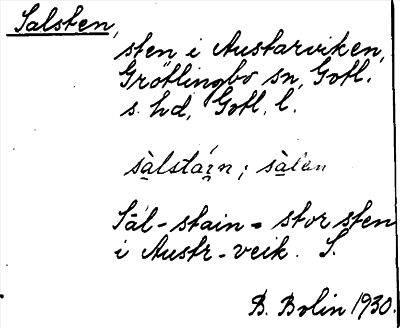 Salsten,
sten i Austarviken,
Grötlingbo sn, Gotl.
s. hd, Gotl. l.
sàlstáin; sàlen
Sāl-stain = stor sten
i Austr-veik. S.
B. Bolin 1930.